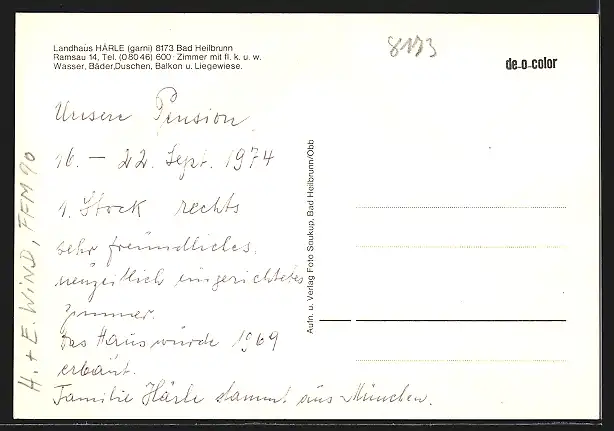 Landhaus HÄRLE (garni) 8173 Bad Heilbrunn
Ramsau 14, Tel. (0 80 46) 600 · Zimmer mit fl. k. u. w.
Wasser, Bäder, Duschen, Balkon u. Liegewiese.
8173
de-o-color
Unsere Pension
16. – 22. Sept. 1974
1. Stock rechts
sehr freundliches,
neuzeitlich eingerichtetes
Zimmer.
Das Haus wurde 1969
erbaut.
Familie Härle stammt aus München.
H. + E. WIND, FFM 90
Aufn. u. Verlag Foto Snukup, Bad Heilbrunn/Obb